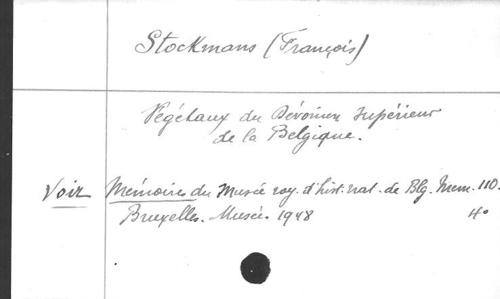 Stockmans (François)
Végétaux du Dévonien Supérieur
de la Belgique.
Voir Mémoires du Musée roy. d'hist. nat. de Blg. Mem. 110.
Bruxelles. Musée. 1948 4º